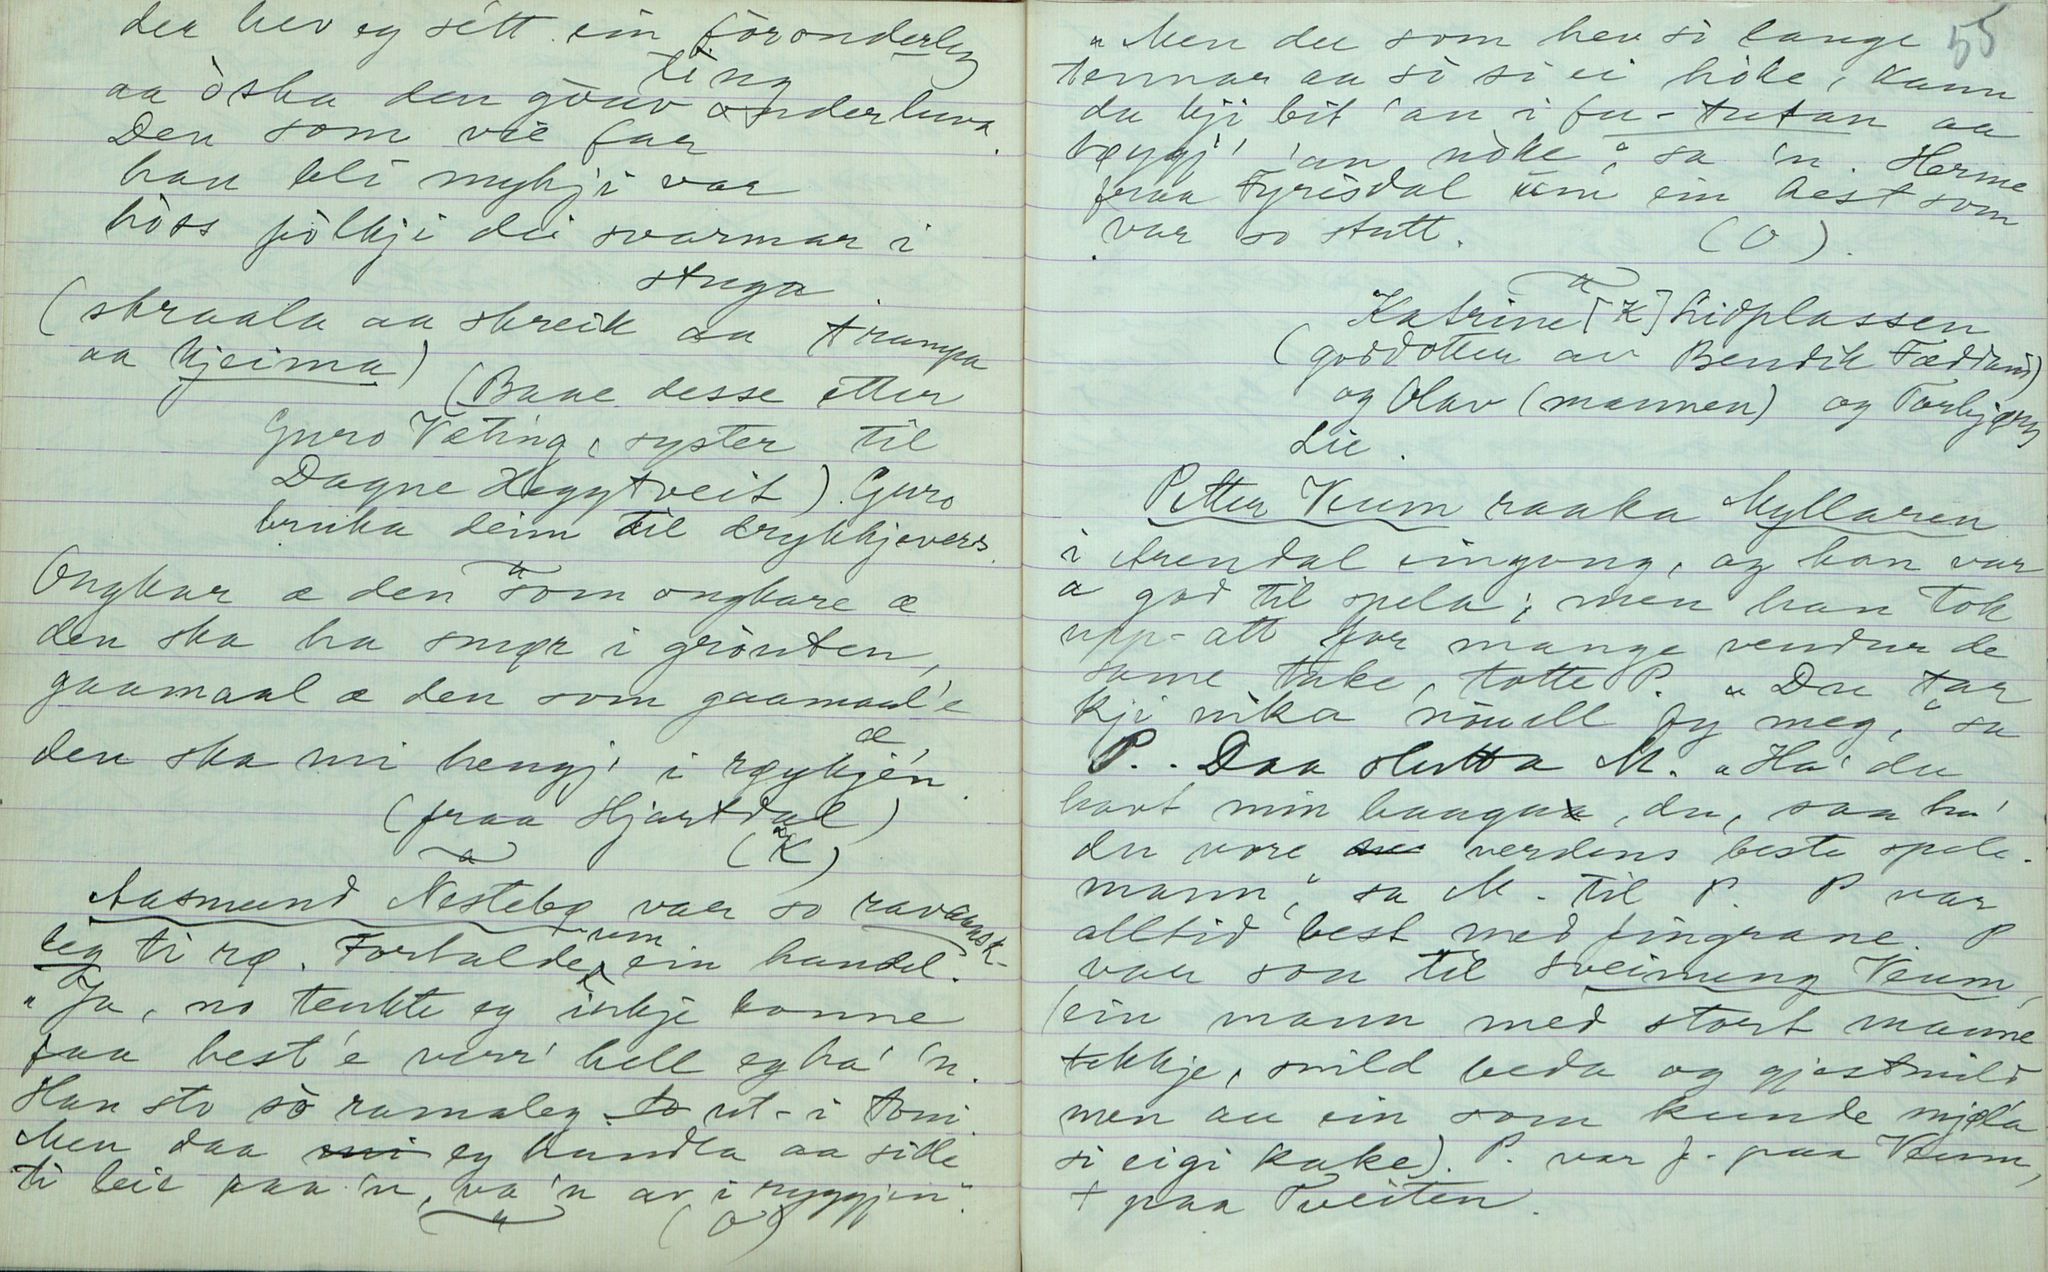 der hev eg sétt ein föronderleg
ting
aa òska den gòuv onderluva.
Den som vie faer
han bli mykji var
hòss fòlkji dei svarmar i
stuga
(skraala aa skreik aa trampa
aa kjeima)
(Baae desse etter
Guro Væting, syster til
Dagne Heggtveit). Guro
bruka deim til drykkjevers.
Ongkar æ den som ongkare æ
den ska ha smør i grauten,
gaamaal æ den som gaamaal'e
æ
den ska mi hengj' i røykjén.
(fraa Hjartdal)
(K)
Aasmund Nestebø var so ravdansk-
um
leg ti rø. Fortalde ein handel.
"Ja, no tenkte eg inkje konne
faa best'e verr' hell eg ha' 'n.
Han sto sò ramaleg to ut-i toni.
Men daa mi eg handla aa sille
ti leie paa 'n, va 'n av i ryggjen".
(O)
55
"Men du som hev sò lange
tennar aa sò si ei hòke, kann
du kji bit 'an i fu-tutan aa
tøygj' 'an nòke", sa 'n Herme
fraa Fyrisdal um ein hest som
var so stutt. (O).
Katrine [K] Lidplassen
(goddotter av Bendik Fædland)
og Olav (mannen) og Torbjørn
Lie.
Petter Veum raaka Myllaren
i Arendal eingong, og han var
a god til spela; men han tok
upp-att for mange vendur de
same take, totte P. "Du tar
kji nika nòuell fy meg," sa
P. - Daa slutta M. "Ha' du
havt min baaga, du, saa ha'
du vore verdens beste spele-
mann", sa M. til P. P var
alltid best med fingrane. P
var son til Sveinung Veum,
(ein mann med stort manne
tekkje, snild beda og gjestmild
men au ein som kunde mjøla
si eigi kake). P. var f. paa Veum,
+ paa Tveiten.